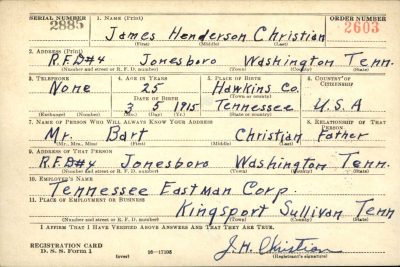 SERIAL NUMBER 1. NAME (Print) ORDER NUMBER
2885 James Henderson Christian 2603
(First) (Middle) (Last)
2. ADDRESS (Print)
R.F.D#4 Jonesboro Washington Tenn.
(Number and street or R. F. D. number) (Town) (County) (State)
3. TELEPHONE 4. AGE IN YEARS 5. PLACE OF BIRTH 6. COUNTRY OF CITIZENSHIP
None 25 Hawkins Co.
DATE OF BIRTH (Town or county)
3 5 1915 Tennessee U.S.A
(Exchange) (Number) (Mo.) (Day) (Yr.) (State or country)
7. NAME OF PERSON WHO WILL ALWAYS KNOW YOUR ADDRESS 8. RELATIONSHIP OF THAT PERSON
Mr. Bart Christian Father
(Mr., Mrs., Miss) (First) (Middle) (Last)
9. ADDRESS OF THAT PERSON
R.F.D#4 Jonesboro Washington Tenn.
(Number and street or R. F. D. number) (Town) (County) (State)
10. EMPLOYER'S NAME
Tennessee Eastman Corp.
11. PLACE OF EMPLOYMENT OR BUSINESS
Kingsport Sullivan Tenn
(Number and street or R. F. D. number) (Town) (County) (State)
I AFFIRM THAT I HAVE VERIFIED ABOVE ANSWERS AND THAT THEY ARE TRUE.
REGISTRATION CARD
D. S. S. Form 1 (over) 16—17105 J.H. Christian
(Registrant's signature)